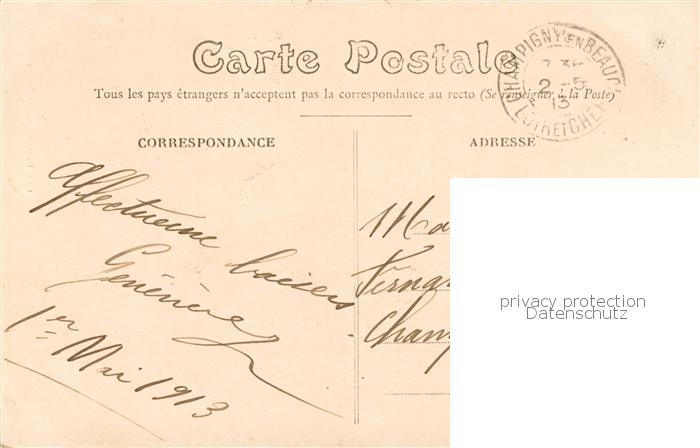 Carte Postale
Tous les pays étrangers n'acceptent pas la correspondance au recto (Se renseigner à la Poste)
CHAMPIGNY EN BEAUCE
2 -5
13
LOIR ET CHER
CORRESPONDANCE
ADRESSE
Affectueux baisers
Geneviève
1er Mai 1913
privacy protection
Datenschutz